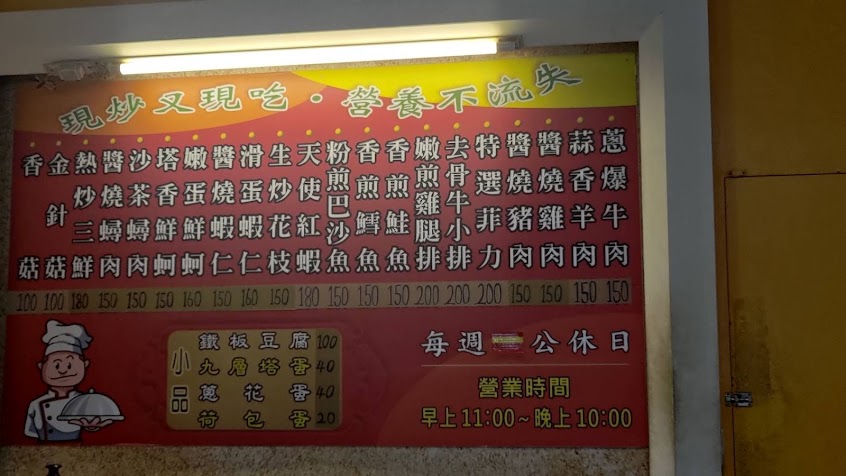 現炒又現吃‧營養不流失
蔥爆牛肉 150
蒜香羊肉 150
醬燒雞肉 150
醬燒豬肉 150
特選菲力 200
去骨牛小排 200
嫩煎雞腿排 200
香煎鮭魚 150
香煎鱈魚 150
粉煎巴沙魚 150
天使紅蝦 180
生炒花枝 150
滑蛋蝦仁 160
醬燒蝦仁 150
嫩蛋鮮蚵 160
塔香鮮蚵 150
沙茶蟳肉 150
醬燒蟳肉 150
熱炒三鮮 180
金針菇 100
香菇 100
小品
鐵板豆腐 100
九層塔蛋 40
蔥花蛋 40
荷包蛋 20
每週 公休日
營業時間
早上11:00~晚上10:00